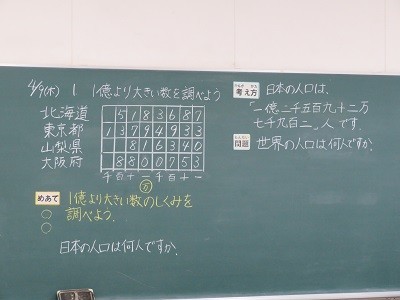 4/9(木) 1 1億より大きい数を調べよう
北海道 5183687
東京都 13794933
山梨県 816340
大阪府 8800753
千百十一千百十一
万
めあて 1億より大きい数のしくみを
調べよう。
日本の人口は何人ですか。
考え方 日本の人口は、
「一億二千五百九十二万
七千九百二」人です。
問題 世界の人口は何人ですか。